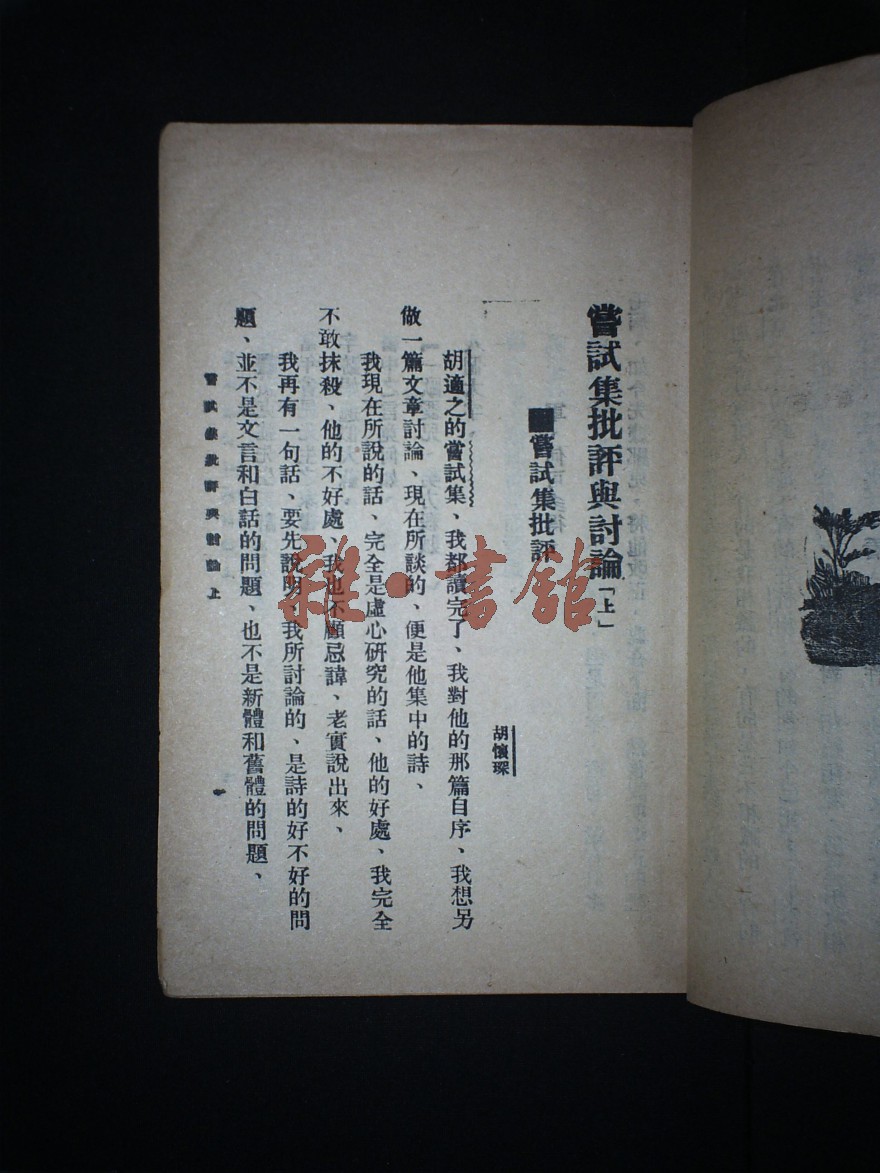 嘗試集批評與討論「上」
■嘗試集批評
胡懷琛
胡適之的嘗試集、我都讀完了、我對他的那篇自序、我想另
做一篇文章討論、現在所談的、便是他集中的詩、
我現在所說的話、完全是虛心研究的話、他的好處、我完全
不敢抹殺、他的不好處、我也不顧忌諱、老實說出來、
我再有一句話、要先說明、我所討論的、是詩的好不好的問
題、並不是文言和白話的問題、也不是新體和舊體的問題、
嘗試集批評與討論 上
一
雜·書館